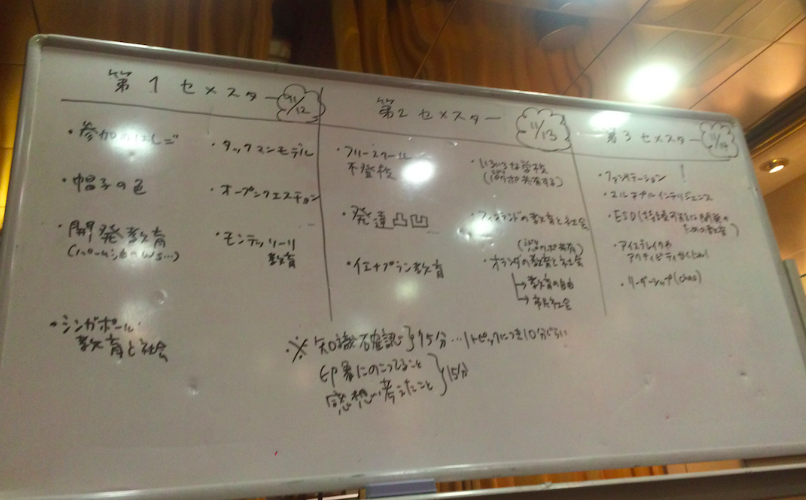 第1セメスター 11/12
・参加のはしご
・帽子の色
・開発教育
・シンガポール
教育と社会
・タックスマンモデル
・オープンクエスチョン
・モンテッソーリ
教育
第2セメスター 11/13
・フリースクール
不登校
・発達凸凹
・イエナプラン教育
・いろいろな学校
・フィンランドの教育と社会
・オランダの教育と社会
→教育の自由
→市民社会
第3セメスター
・ファシリテーション
・マルチプルインテリジェンス
・ESD(持続可能な開発の
ための教育)
・アイスブレイクや
・リーダーシップ
・※ 知識確認 } 45分…1トピックにつき10分ぐらい
印象にのこってること
感想・考えたこと } 15分